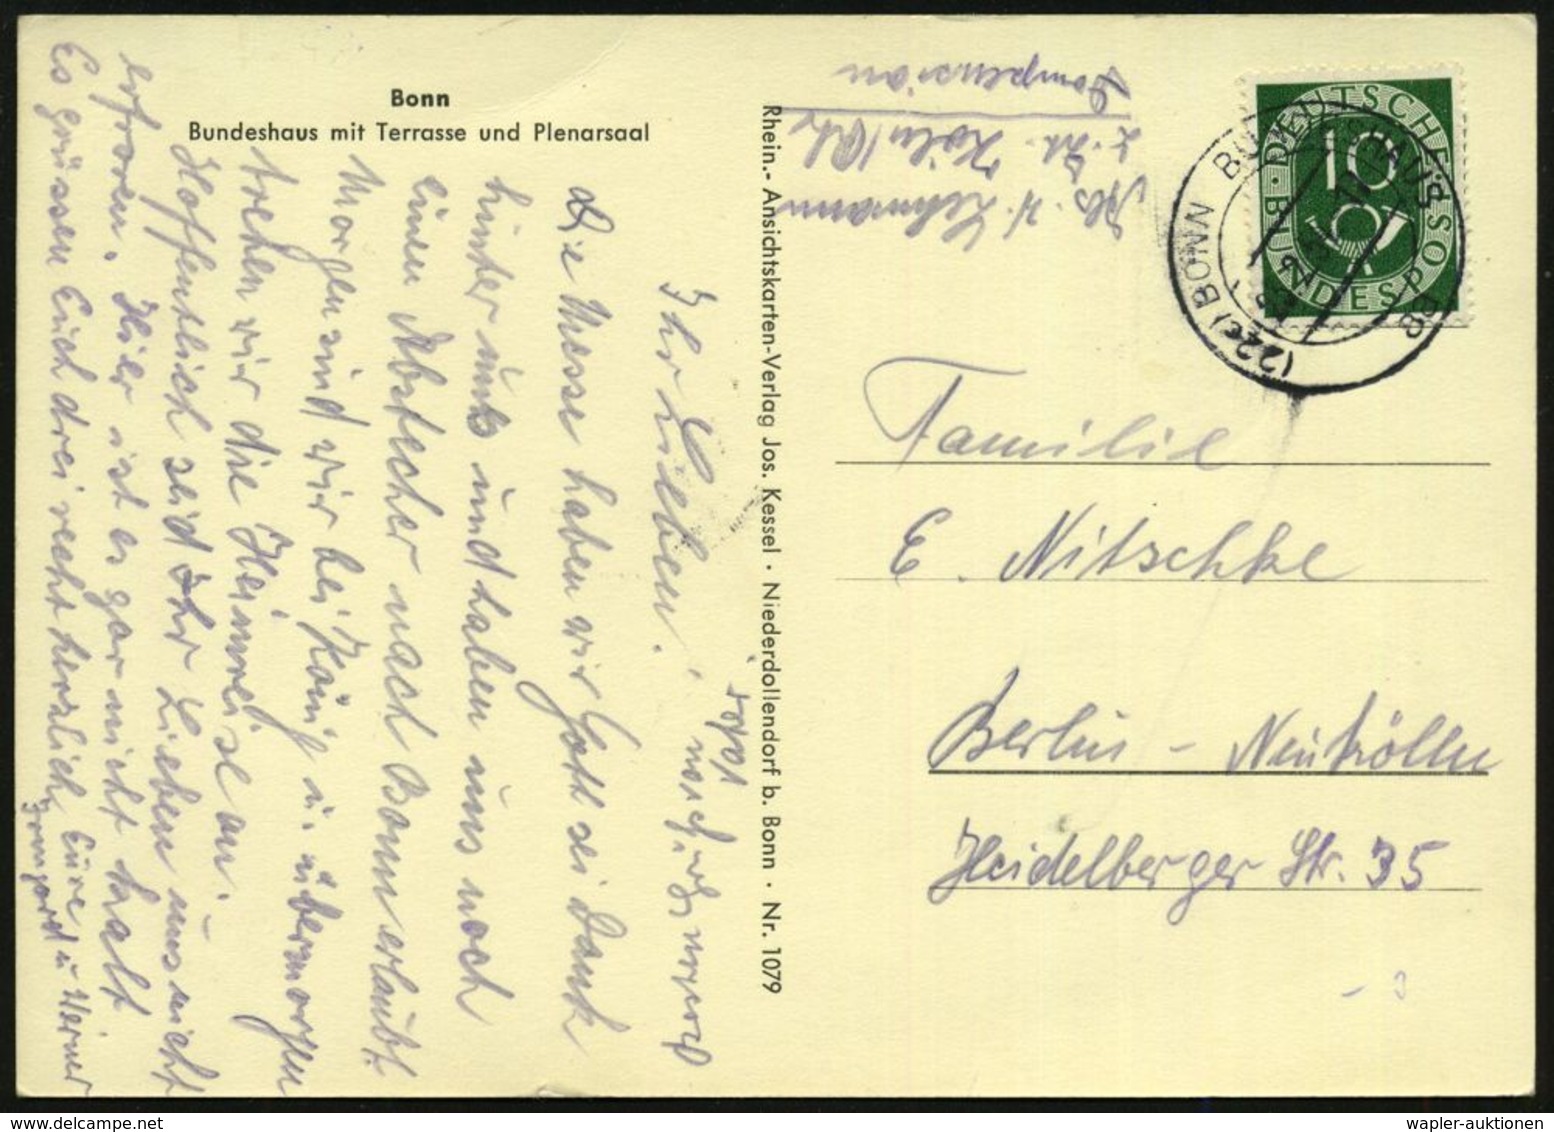 Bonn
Bundeshaus mit Terrasse und Plenarsaal
Rhein.- Ansichtskarten-Verlag Jos. Kessel · Niederdollendorf b. Bonn · Nr. 1079
Abs. H. Lehmann
z. Zt. Köln/Rh
DEUTSCHE BUNDESPOST
10
(22c) BONN BUNDESHAUS
Ihr Lieben!
Die Messe haben wir Gott sei Dank
hinter uns und haben uns noch
einen Abstecher nach Bonn erlaubt.
Morgen sind wir bei König u. übermorgen
treten wir die Heimreise an.
Hoffentlich seid Ihr Lieben uns nicht
erfroren. Hier ist es gar nicht kalt
Es grüssen Euch drei recht herzlich Eure
Irmgard u. Werner
Familie
E. Nitschke
Berlin - Neukölln
Heidelberger Str. 35
wapler-auktionen